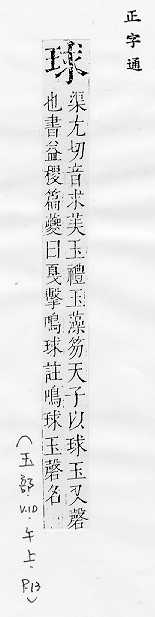 正字通
球
渠尤切音求美玉禮玉藻笏天子以球玉又磬
也書益稷篇夔曰戛擊鳴球註鳴球玉磬名
(玉部·V.10·午上·P.13)